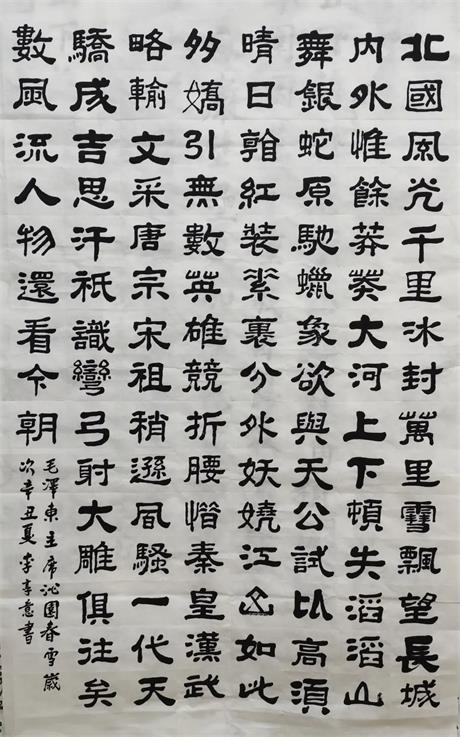 北國風光千里冰封萬里雪飄望長城
內外惟餘莽莽大河上下頓失滔滔山
舞銀蛇原馳蠟象欲與天公試比高須
晴日看紅裝素裹分外妖嬈江山如此
多嬌引無數英雄競折腰惜秦皇漢武
略輸文采唐宗宋祖稍遜風騷一代天
驕成吉思汗祇識彎弓射大雕俱往矣
數風流人物還看今朝
毛澤東主席沁園春雪歲
次辛丑夏李享意書